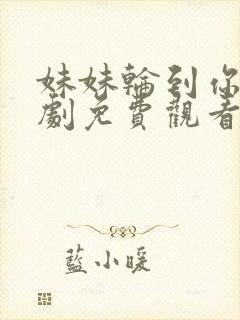 妹妹輪到你
劇免費觀看
藍小暖